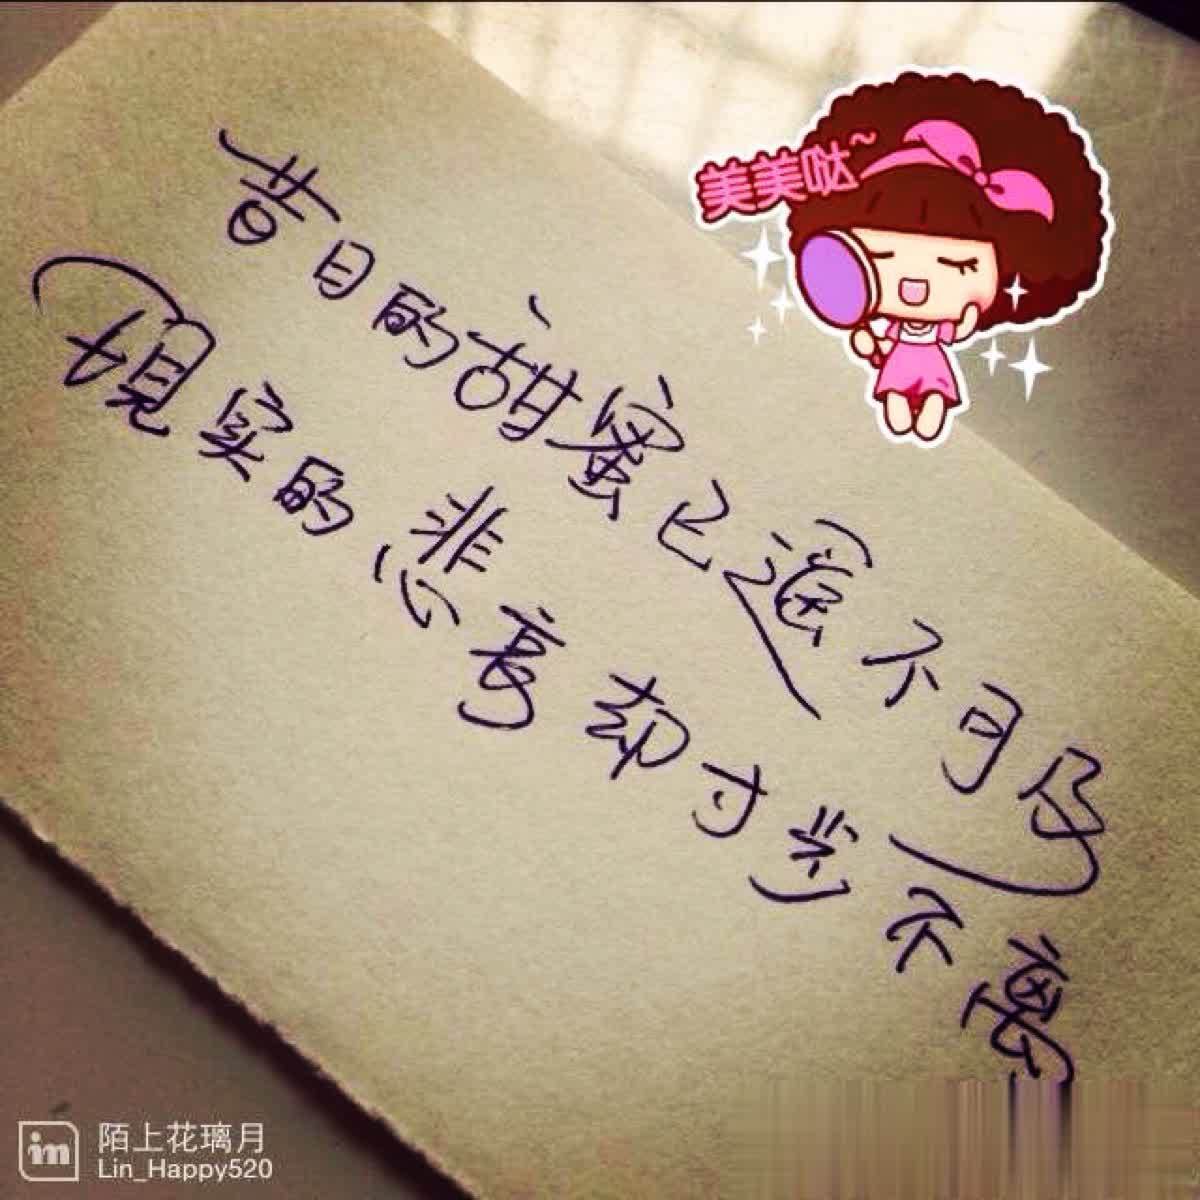 美美哒~
昔日的甜蜜已遥不可及
现实的悲哀却寸步不离
陌上花璃月
Lin_Happy520